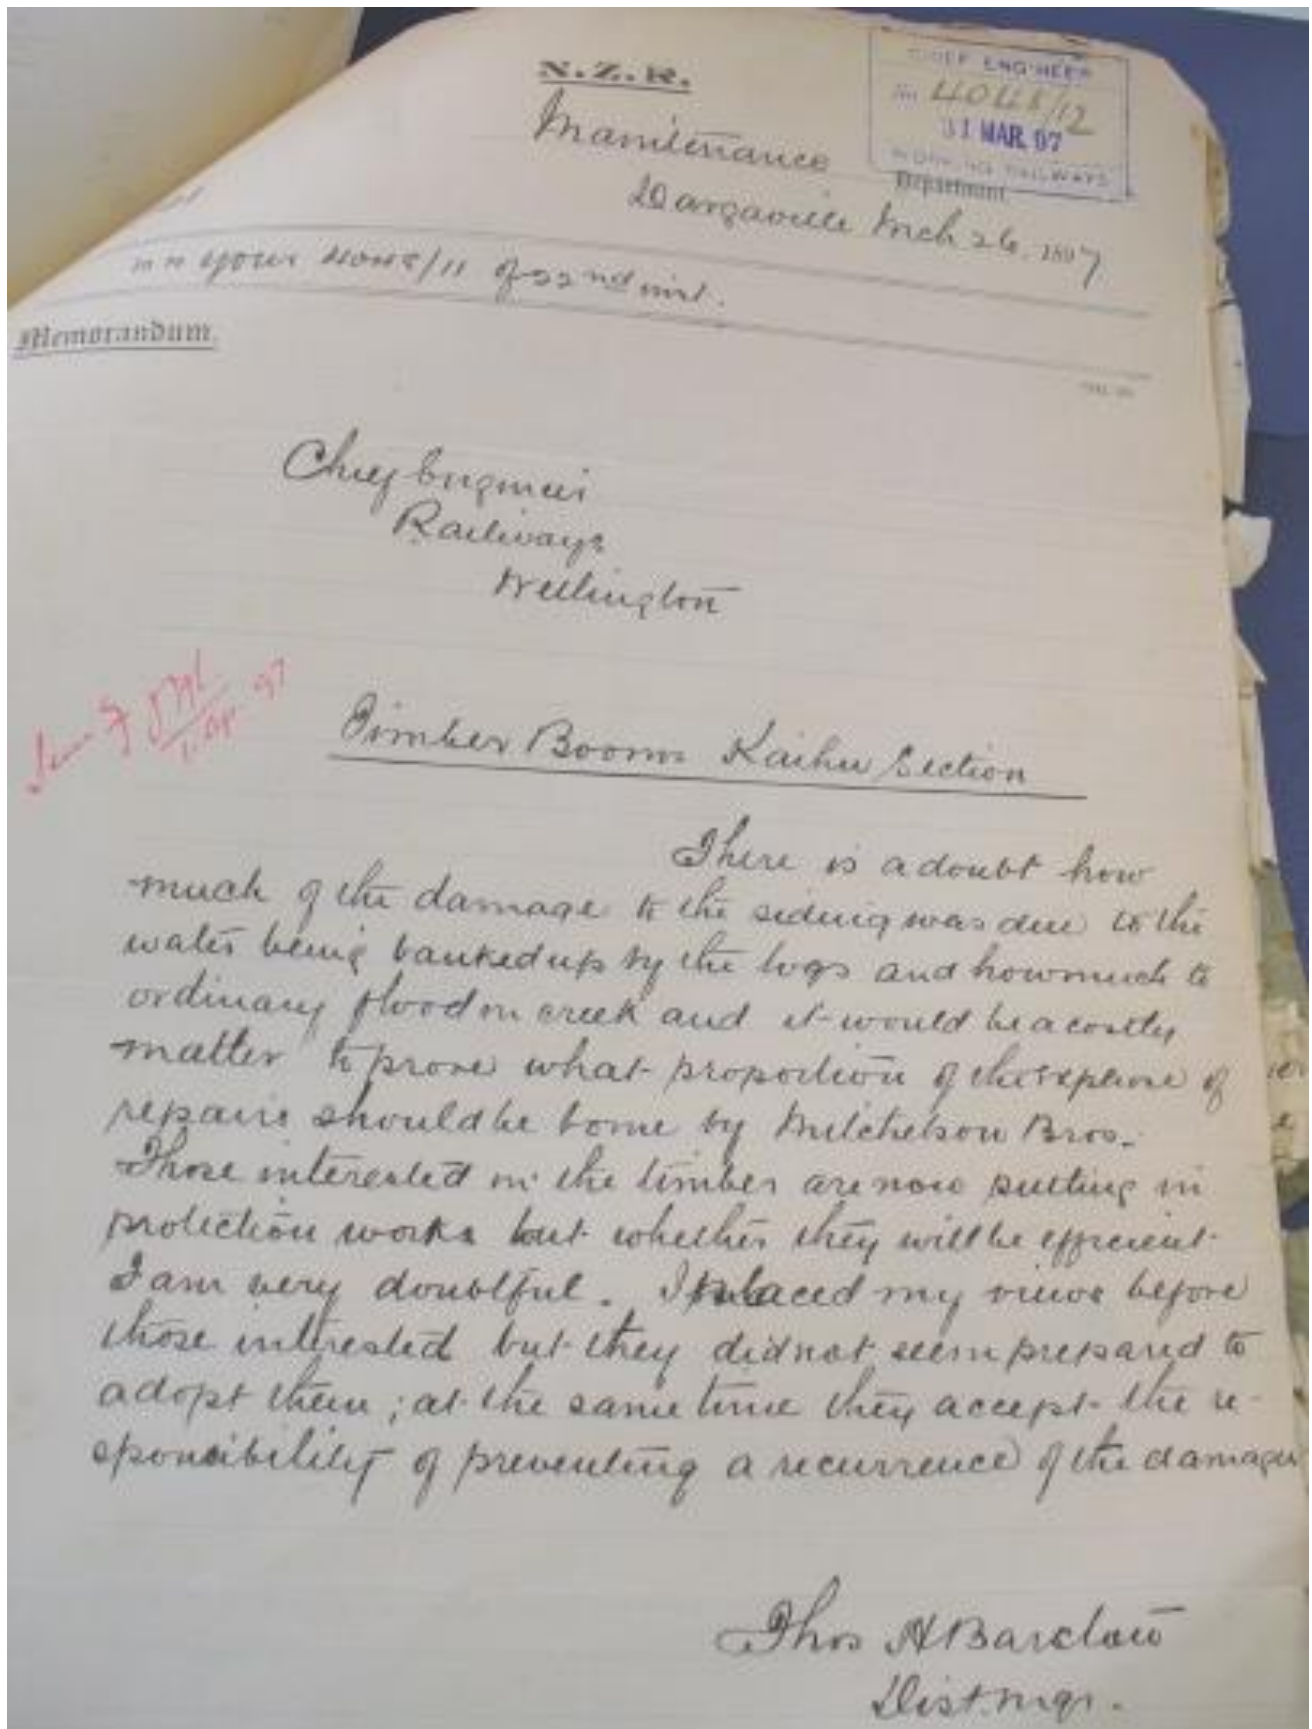 N.Z.R.
CHIEF ENGINEER
4048/12
31 MAR. 97
WORKING RAILWAYS
Maintenance Department
Dargaville Mch 26, 1897
your 4048/11 of 22nd inst.
Memorandum.
Chief Engineer
Railways
Wellington
1. Ap. 97
Timber Booms Kaihu Section
There is a doubt how
much of the damage to the siding was due to the
water being banked up by the logs and how much to
ordinary flood in creek and it would be a costly
matter to prove what proportion of the expense of
repairs should be borne by Mitchelson Bros.
Those interested in the timber are now putting in
protection works but whether they will be efficient
I am very doubtful. I placed my views before
those interested but they did not seem prepared to
adopt them; at the same time they accept the re-
sponsibility of preventing a recurrence of the damages
Thos H Barclow
Dist. Mgr.